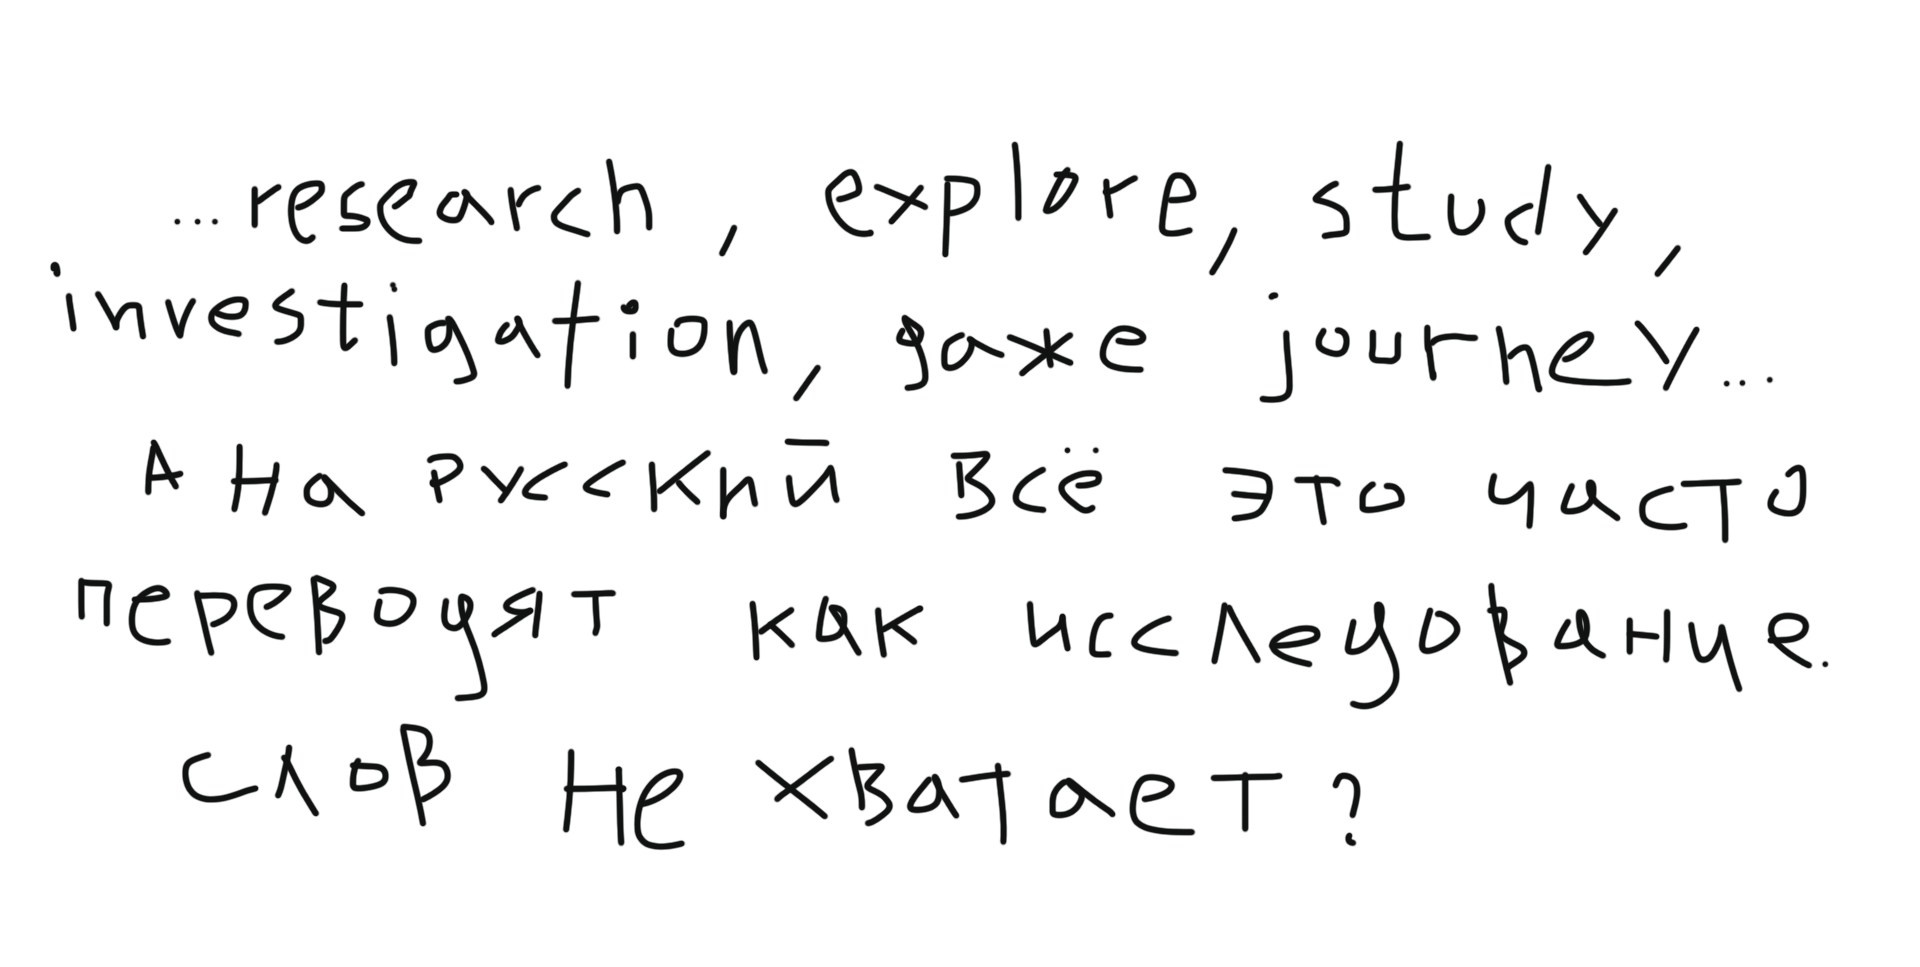 ...research, explore, study,
investigation, даже journey...
А на русский всё это часто
переводят как исследование.
слов не хватает?